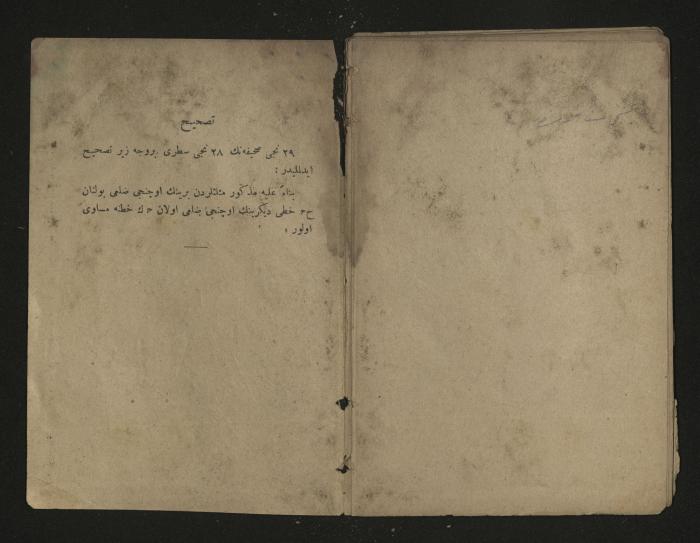 تصحیح
٢٩ نجی صحیفه‌نك ٢٨ نجی سطری بروجه زیر تصحیح
ایدلملیدر :
بناءً علیه مذكور مثلثلردن برینك اوچنجی ضلعی بولنان
خطی دیگرینك اوچنجی ضلعی اولان خطنه مساوی
اولور ؛